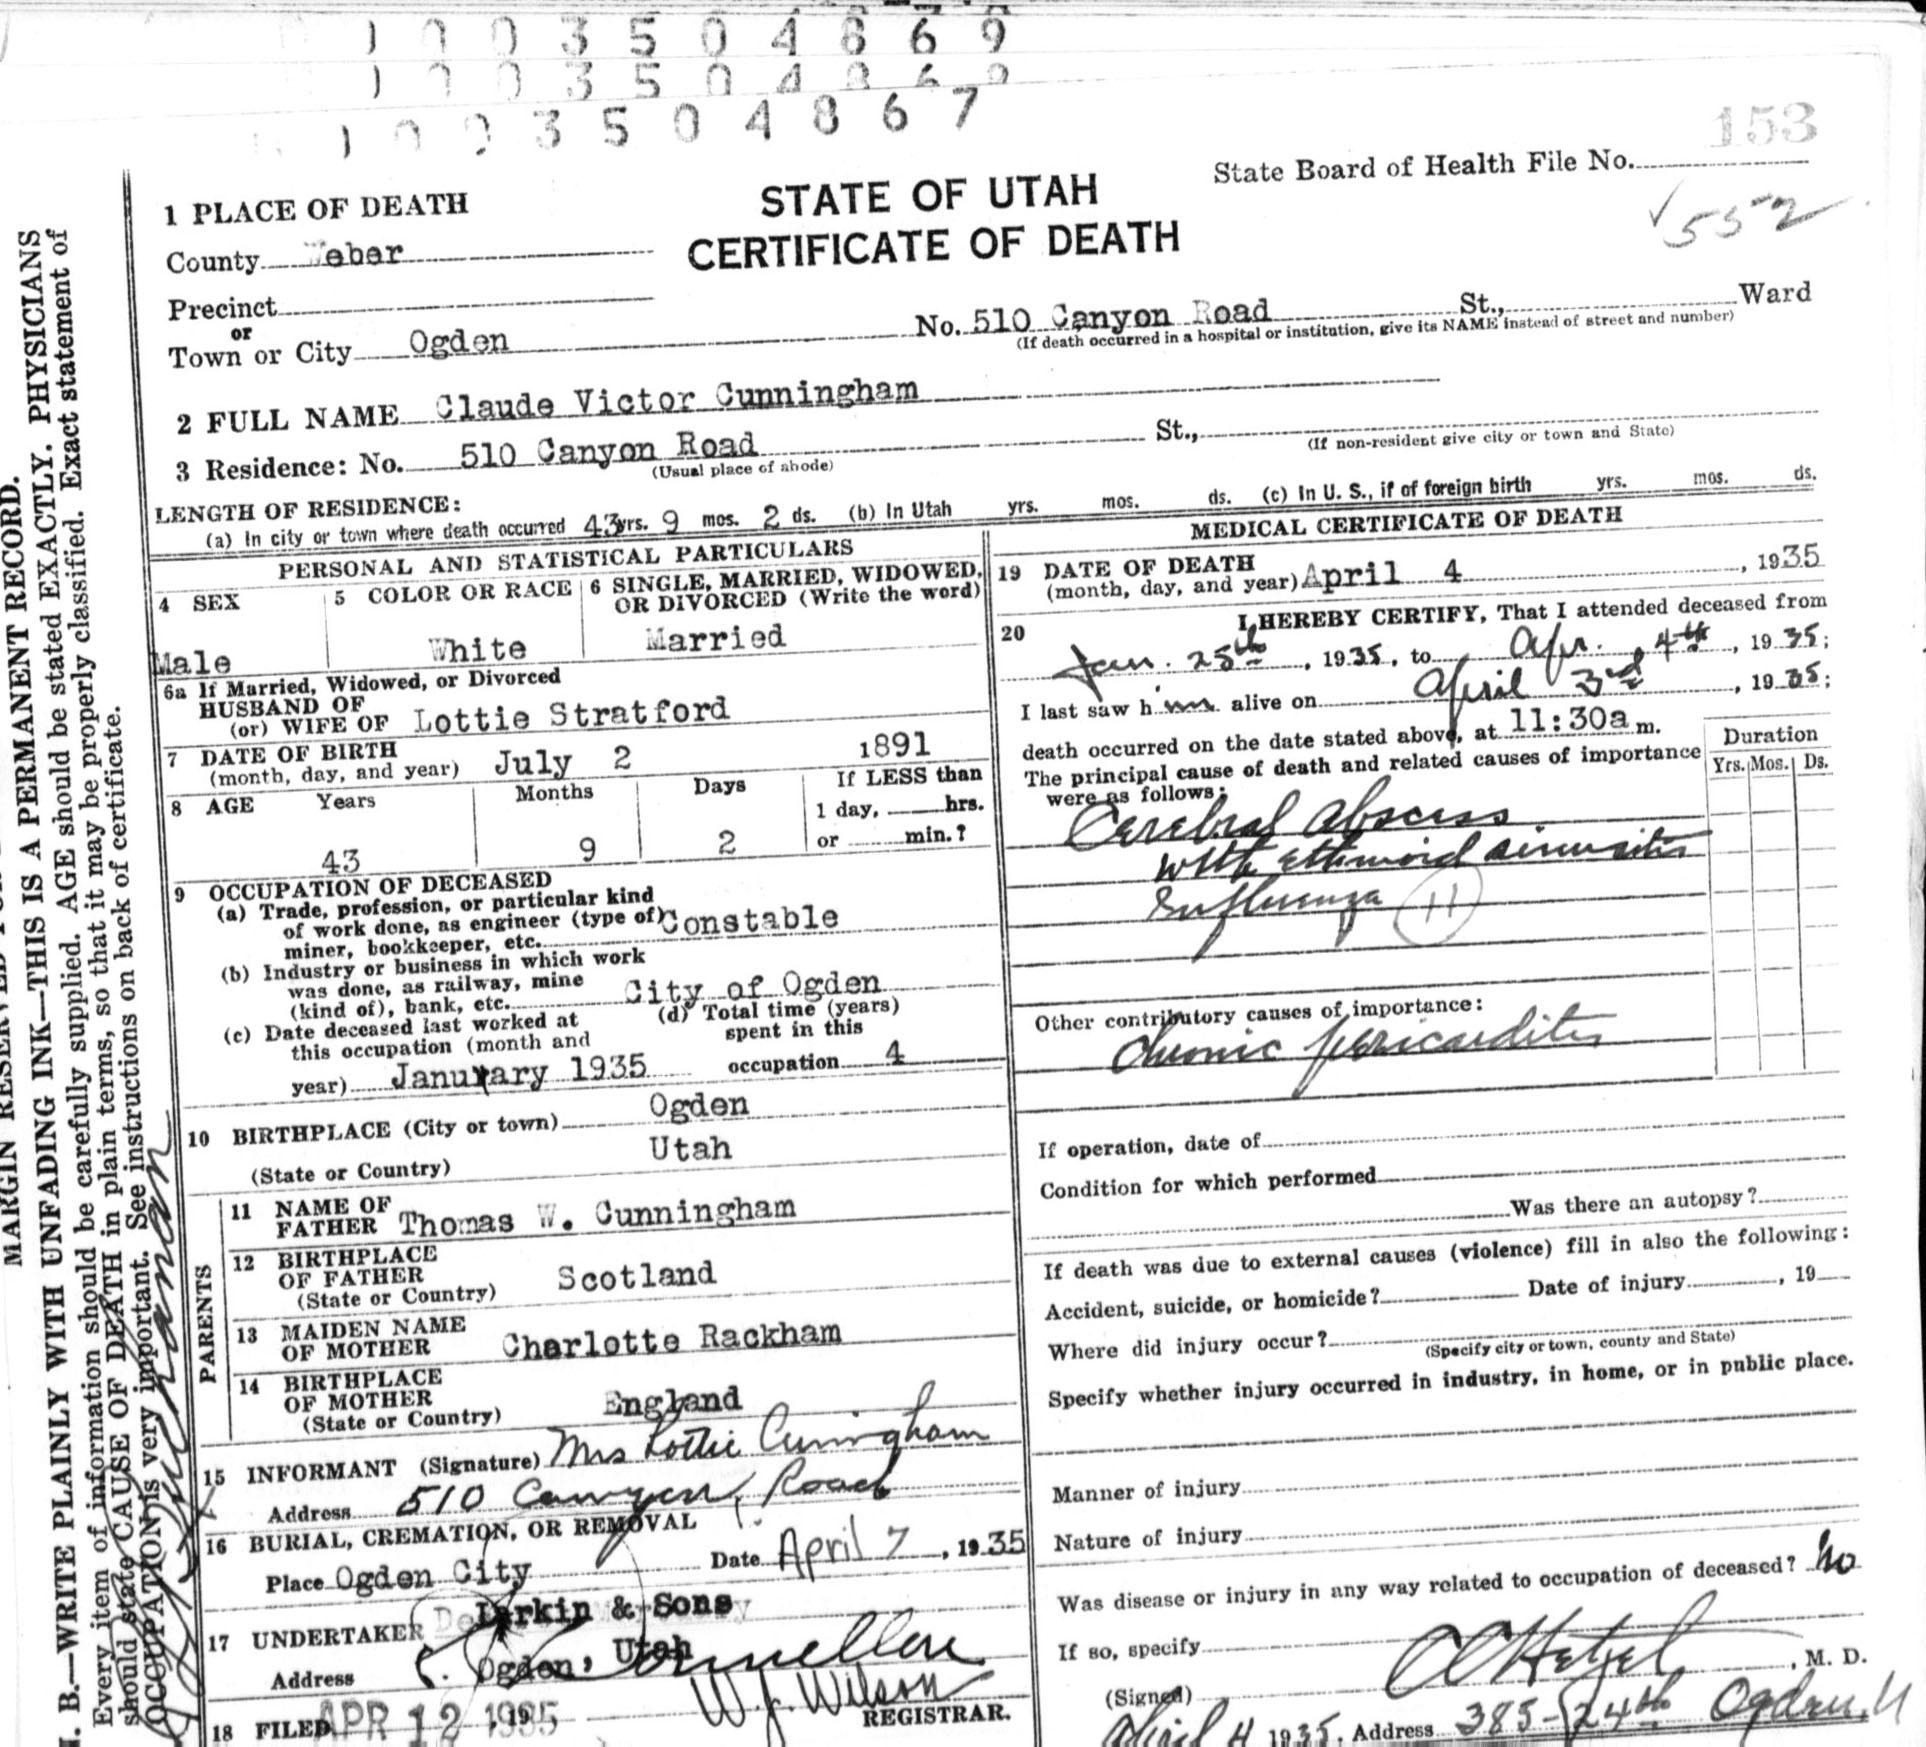 1 0 0 3 5 0 4 8 6 9
1 0 0 3 5 0 4 8 6 9
1 0 0 3 5 0 4 8 6 7
153
State Board of Health File No.
√552
STATE OF UTAH
CERTIFICATE OF DEATH
1 PLACE OF DEATH
County Weber
Precinct
or
Town or City Ogden No. 510 Canyon Road St., Ward
(If death occurred in a hospital or institution, give its NAME instead of street and number)
2 FULL NAME Claude Victor Cunningham
3 Residence: No. 510 Canyon Road St.,
(Usual place of abode) (If non-resident give city or town and State)
LENGTH OF RESIDENCE:
(a) In city or town where death occurred 43 yrs. 9 mos. 2 ds. (b) In Utah yrs. mos. ds. (c) In U. S., if of foreign birth yrs. mos. ds.
PERSONAL AND STATISTICAL PARTICULARS
4 SEX
Male
5 COLOR OR RACE
White
6 SINGLE, MARRIED, WIDOWED,
OR DIVORCED (Write the word)
Married
6a If Married, Widowed, or Divorced
HUSBAND OF
(or) WIFE OF Lottie Stratford
7 DATE OF BIRTH
(month, day, and year) July 2 1891
8 AGE Years Months Days If LESS than
1 day, hrs.
or min.?
43 9 2
9 OCCUPATION OF DECEASED
(a) Trade, profession, or particular kind
of work done, as engineer (type of) Constable
miner, bookkeeper, etc.
(b) Industry or business in which work
was done, as railway, mine
(kind of), bank, etc. City of Ogden
(c) Date deceased last worked at
this occupation (month and
year) January 1935
(d) Total time (years)
spent in this
occupation 4
10 BIRTHPLACE (City or town) Ogden
(State or Country) Utah
PARENTS
11 NAME OF
FATHER Thomas W. Cunningham
12 BIRTHPLACE
OF FATHER
(State or Country) Scotland
13 MAIDEN NAME
OF MOTHER Charlotte Rackham
14 BIRTHPLACE
OF MOTHER
(State or Country) England
15 INFORMANT (Signature) Mrs Lottie Cuningham
Address 510 Canyon Road
16 BURIAL, CREMATION, OR REMOVAL
Place Ogden City Date April 7, 1935
17 UNDERTAKER Larkin & Sons
Address Ogden, Utah
18 FILED APR 12 1935 W. J. Wilson
REGISTRAR.
MEDICAL CERTIFICATE OF DEATH
19 DATE OF DEATH
(month, day, and year) April 4, 1935
20 I HEREBY CERTIFY, That I attended deceased from
Jan. 25th, 1935, to Apr. 4th, 1935;
I last saw him alive on April 3rd, 1935;
death occurred on the date stated above, at 11:30a m.
The principal cause of death and related causes of importance
were as follows:
Duration
Yrs. Mos. Ds.
Cerebral Abscess
with ethmoid sinusitis
Influenza (11)
Other contributory causes of importance:
Chronic pericarditis
If operation, date of
Condition for which performed
Was there an autopsy?
If death was due to external causes (violence) fill in also the following:
Accident, suicide, or homicide? Date of injury , 19
Where did injury occur?
(Specify city or town, county and State)
Specify whether injury occurred in industry, in home, or in public place.
Manner of injury
Nature of injury
Was disease or injury in any way related to occupation of deceased? No
If so, specify
(Signed) , M. D.
April 4 1935, Address 385-24th Ogden, U
MARGIN RESERVED
N. B.—WRITE PLAINLY WITH UNFADING INK—THIS IS A PERMANENT RECORD.
Every item of information should be carefully supplied. AGE should be stated EXACTLY. PHYSICIANS
should state CAUSE OF DEATH in plain terms, so that it may be properly classified. Exact statement of
OCCUPATION is very important. See instructions on back of certificate.